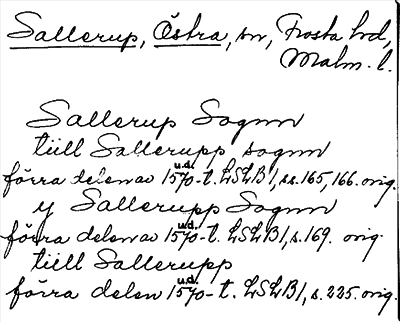 Sallerup, Östra, sn, Frosta hd,
Malm. l.
Sallerup Sognn
tiill Sallerupp sognn
förra delen av 1570-t. LSLB1, ss. 165, 166. orig.
u.d.
y Sallerupp Sognn
förra delen av 1570-t. LSLB1, s. 169. orig.
u.d.
tiill Sallerupp
förra delen 1570-t. LSLB1, s. 225. orig.
u.d.